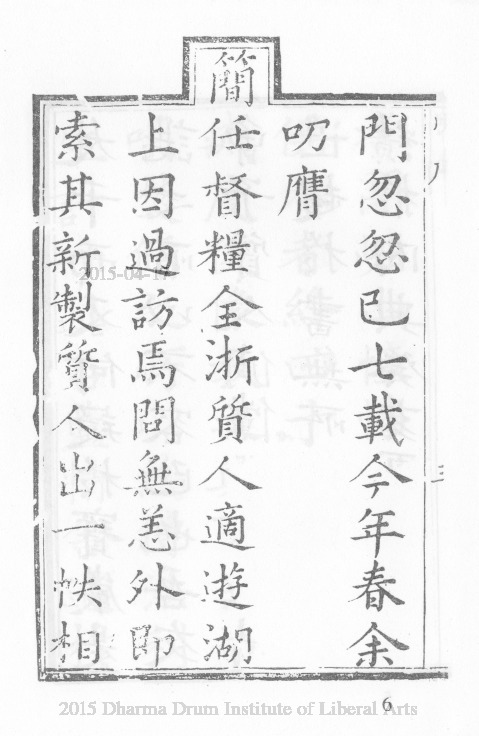 門忽忽已七載今年春余
叨膺
簡任督糧全浙質人適遊湖
上因過訪焉問無恙外即
索其新製質人出一帙相
2015-04-17
6
2015 Dharma Drum Institute of Liberal Arts